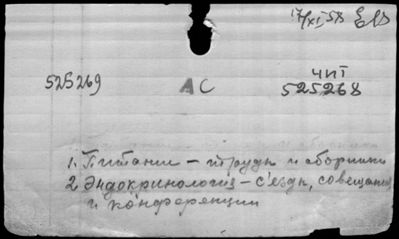 17/XI 58
525269 АС ЧИТ
525268
1. Питание – труды и сборники
2. Эндокринология – с'езды, совещания
и конференции